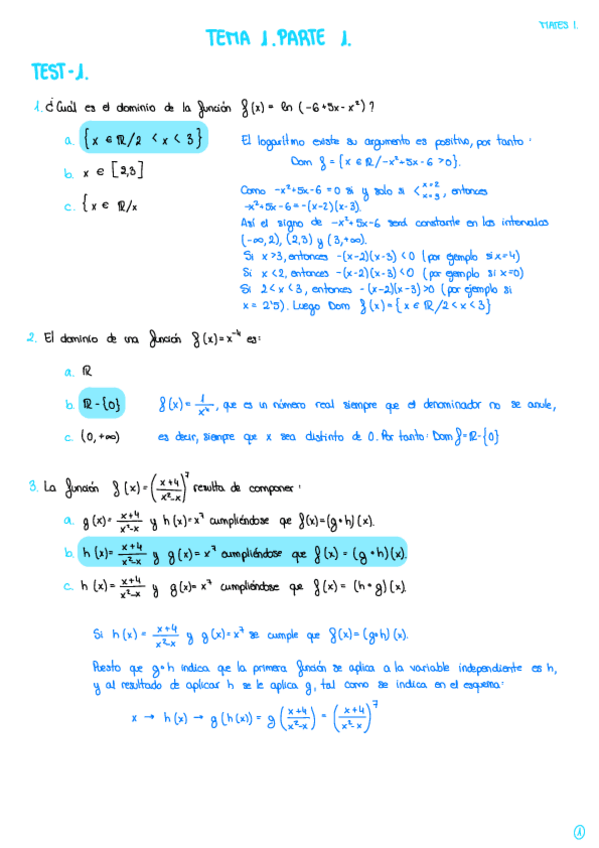 MATES 1.
TEMA 1. PARTE 1.
TEST-1.
1. ¿Cuál es el dominio de la función f(x) = ln (-6+5x-x²)?
a. {x ∈ ℝ/2 < x < 3}
b. x ∈ [2,3]
c. {x ∈ ℝ/x
El logaritmo existe su argumento es positivo, por tanto:
Dom f = {x ∈ ℝ/-x²+5x-6 >0}.
Como -x²+5x-6=0 si y solo si < x=2 x=3, entonces
-x²+5x-6=-(x-2)(x-3).
Así el signo de -x²+5x-6 será constante en los intervalos
(-∞,2), (2,3) y (3,+∞).
Si x>3, entonces -(x-2)(x-3) <0 (por ejemplo si x=4)
Si x<2, entonces -(x-2)(x-3) <0 (por ejemplo si x=0)
Si 2<x<3, entonces -(x-2)(x-3)>0 (por ejemplo si
x= 2'5). Luego Dom f(x)={x ∈ ℝ/2<x<3}
2. El dominio de una función f(x)=x⁻⁴ es:
a. ℝ
b. ℝ-{0}
c. (0,+∞)
f(x)= 1/x⁴, que es un número real siempre que el denominador no se anule,
es decir, siempre que x sea distinto de 0. Por tanto: Dom f=ℝ-{0}
3. La función f(x)=(x+4/x²-x)⁷ resulta de componer:
a. g(x)= x+4/x²-x y h(x)=x⁷ cumpliéndose que f(x)=(g∘h)(x).
b. h(x)= x+4/x²-x y g(x)=x⁷ cumpliéndose que f(x) = (g∘h)(x).
c. h(x)= x+4/x²-x y g(x)=x⁷ cumpliéndose que f(x)= (h∘g)(x).
Si h(x) = x+4/x²-x y g(x)=x⁷ se cumple que f(x)=(g∘h)(x).
Puesto que g∘h indica que la primera función se aplica a la variable independiente es h,
y al resultado de aplicar h se le aplica g, tal como se indica en el esquema:
x → h(x) → g(h(x)) = g(x+4/x²-x) = (x+4/x²-x)⁷
1